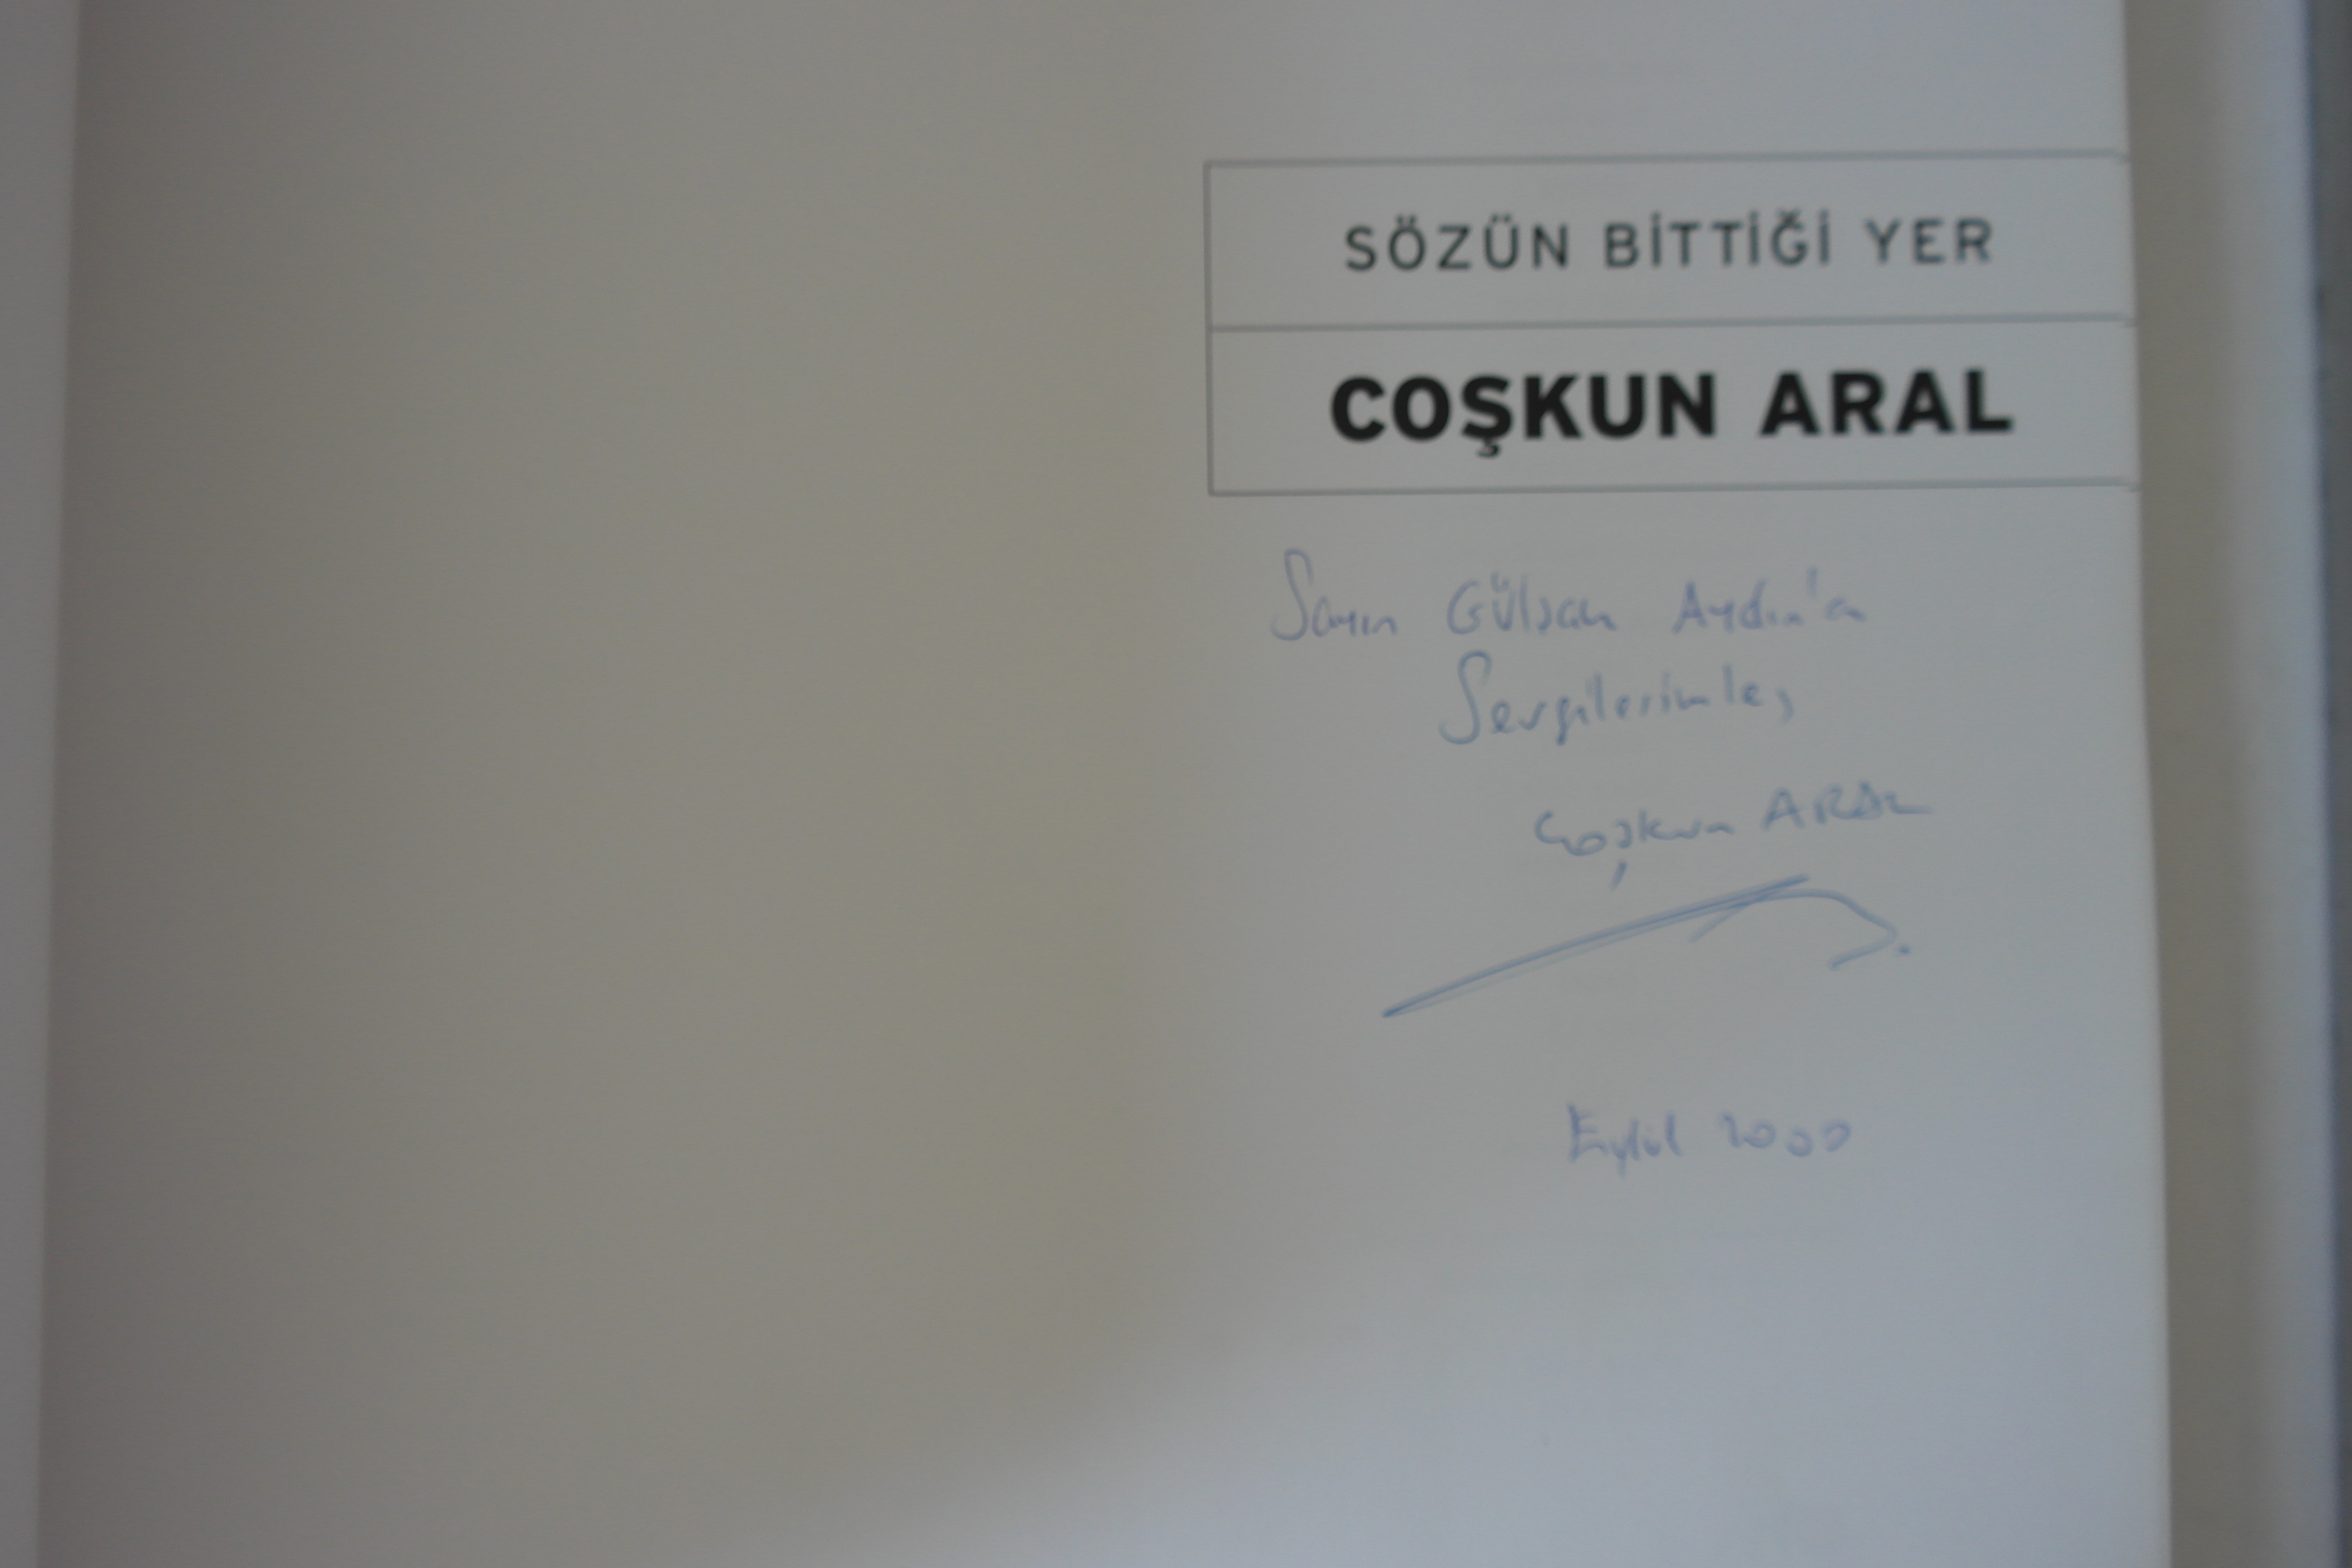 SÖZÜN BİTTİĞİ YER
COŞKUN ARAL
Sayın Gülsah Aydın'a
Sevgilerimle,
Coşkun ARAL
Eylül 2000